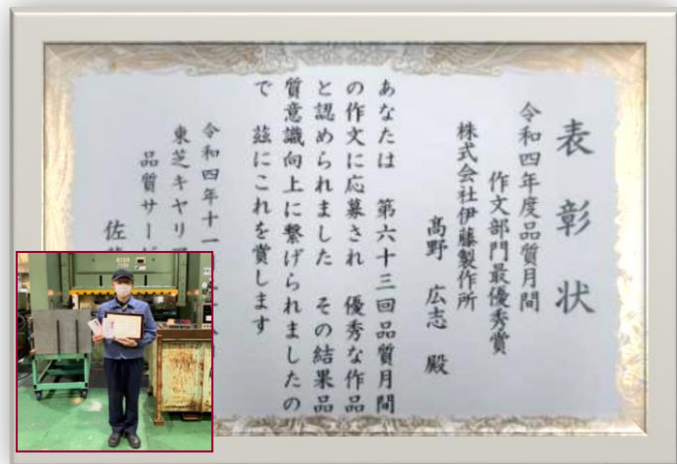 表彰状
令和四年度品質月間
作文部門最優秀賞
株式会社伊藤製作所
髙野 広志 殿
あなたは 第六十三回品質月間
の作文に応募され 優秀な作品
と認められました その結果品
質意識向上に繋げられましたの
で 茲にこれを賞します
令和四年十一
東芝キヤリア
品質サー
佐